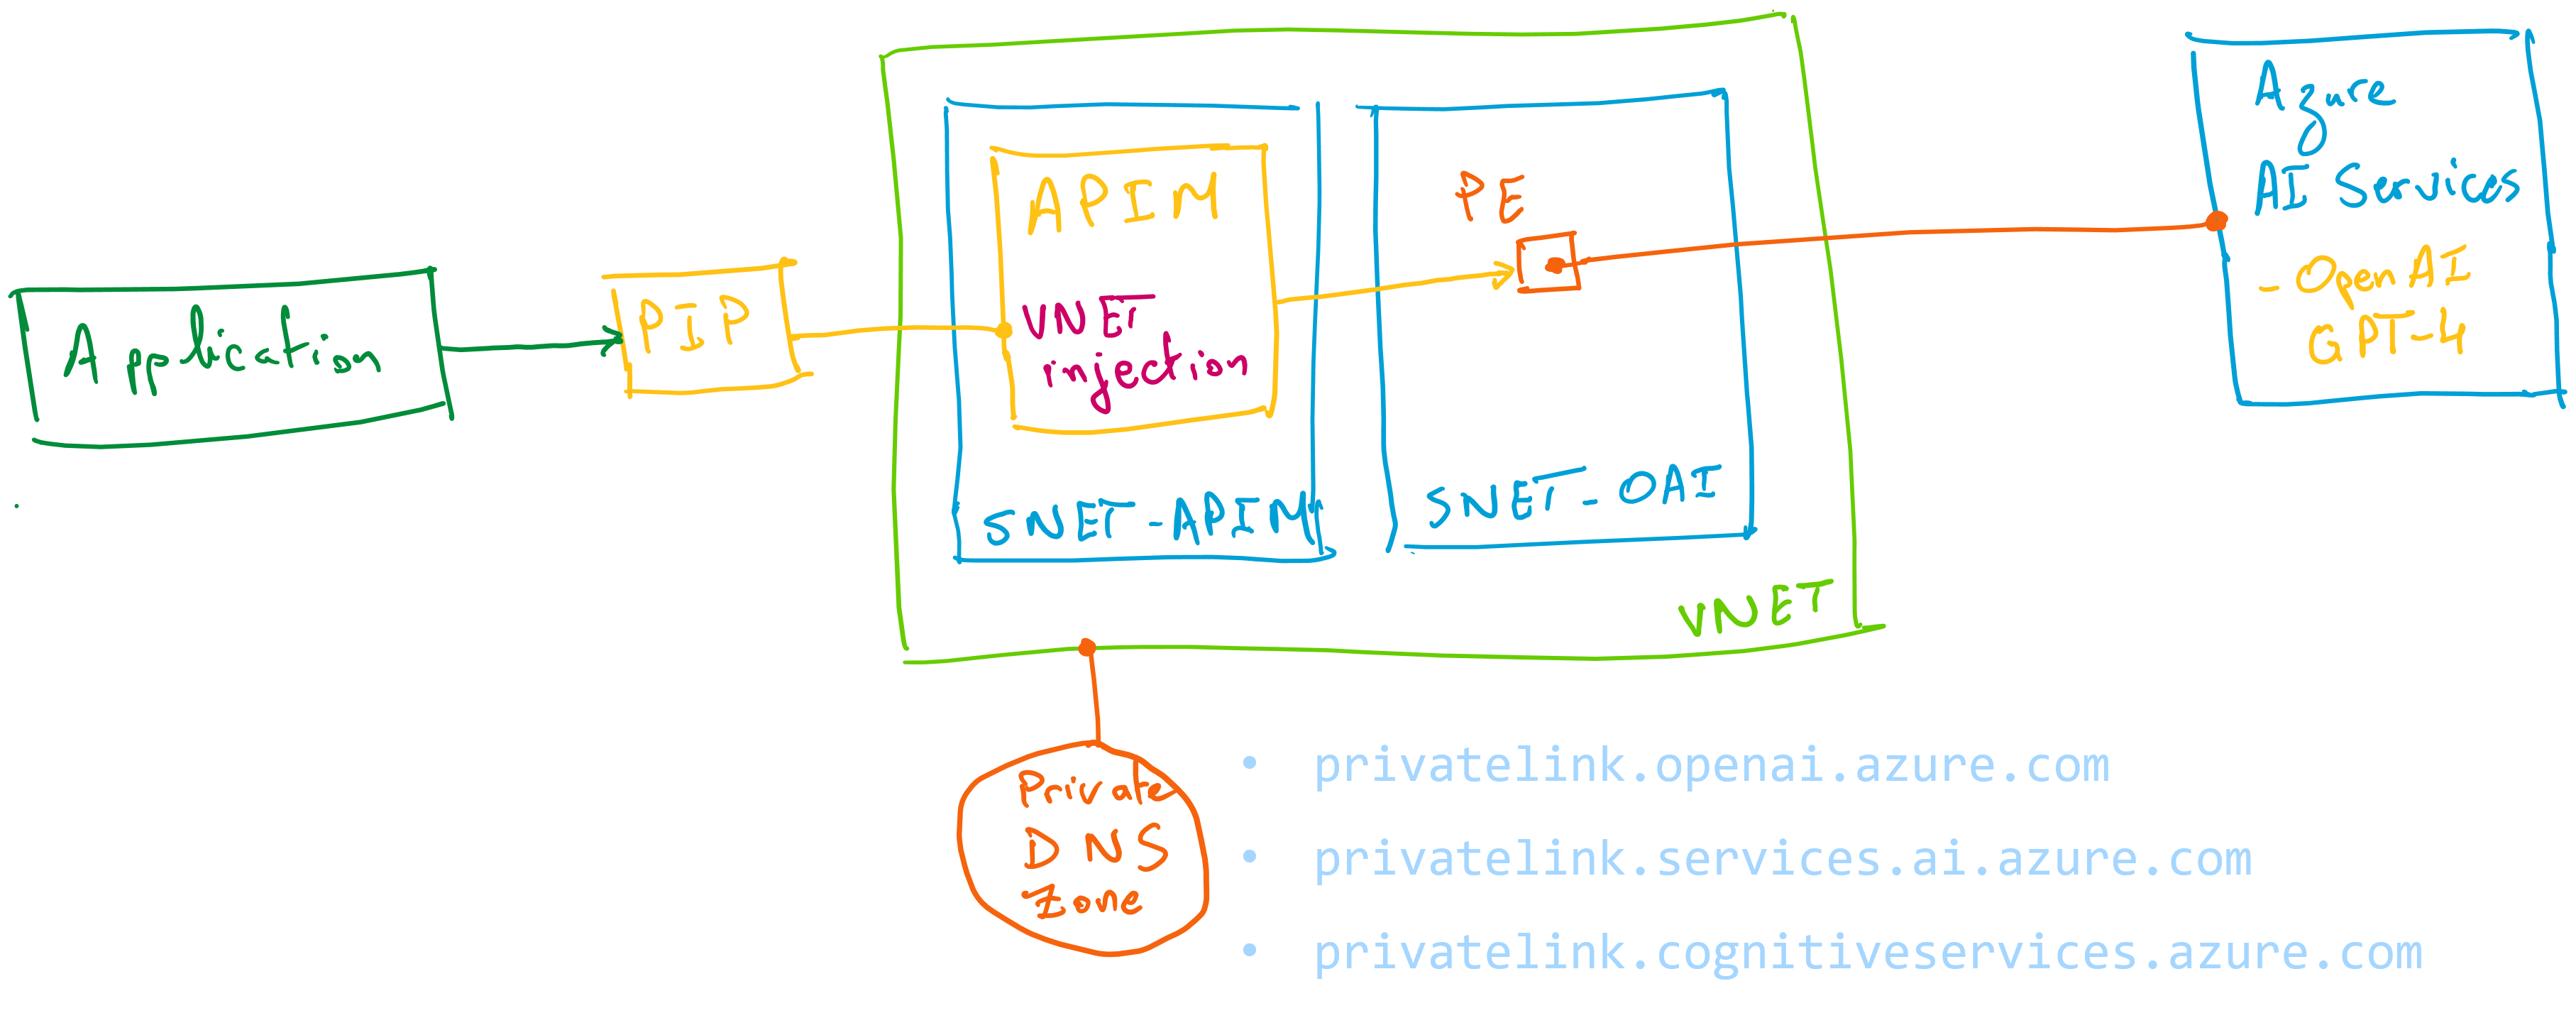 Application
PIP
APIM
VNET
injection
SNET-APIM
PE
SNET-OAI
VNET
Azure
AI Services
- OpenAI
GPT-4
Private
DNS
Zone
• privatelink.openai.azure.com
• privatelink.services.ai.azure.com
• privatelink.cognitiveservices.azure.com